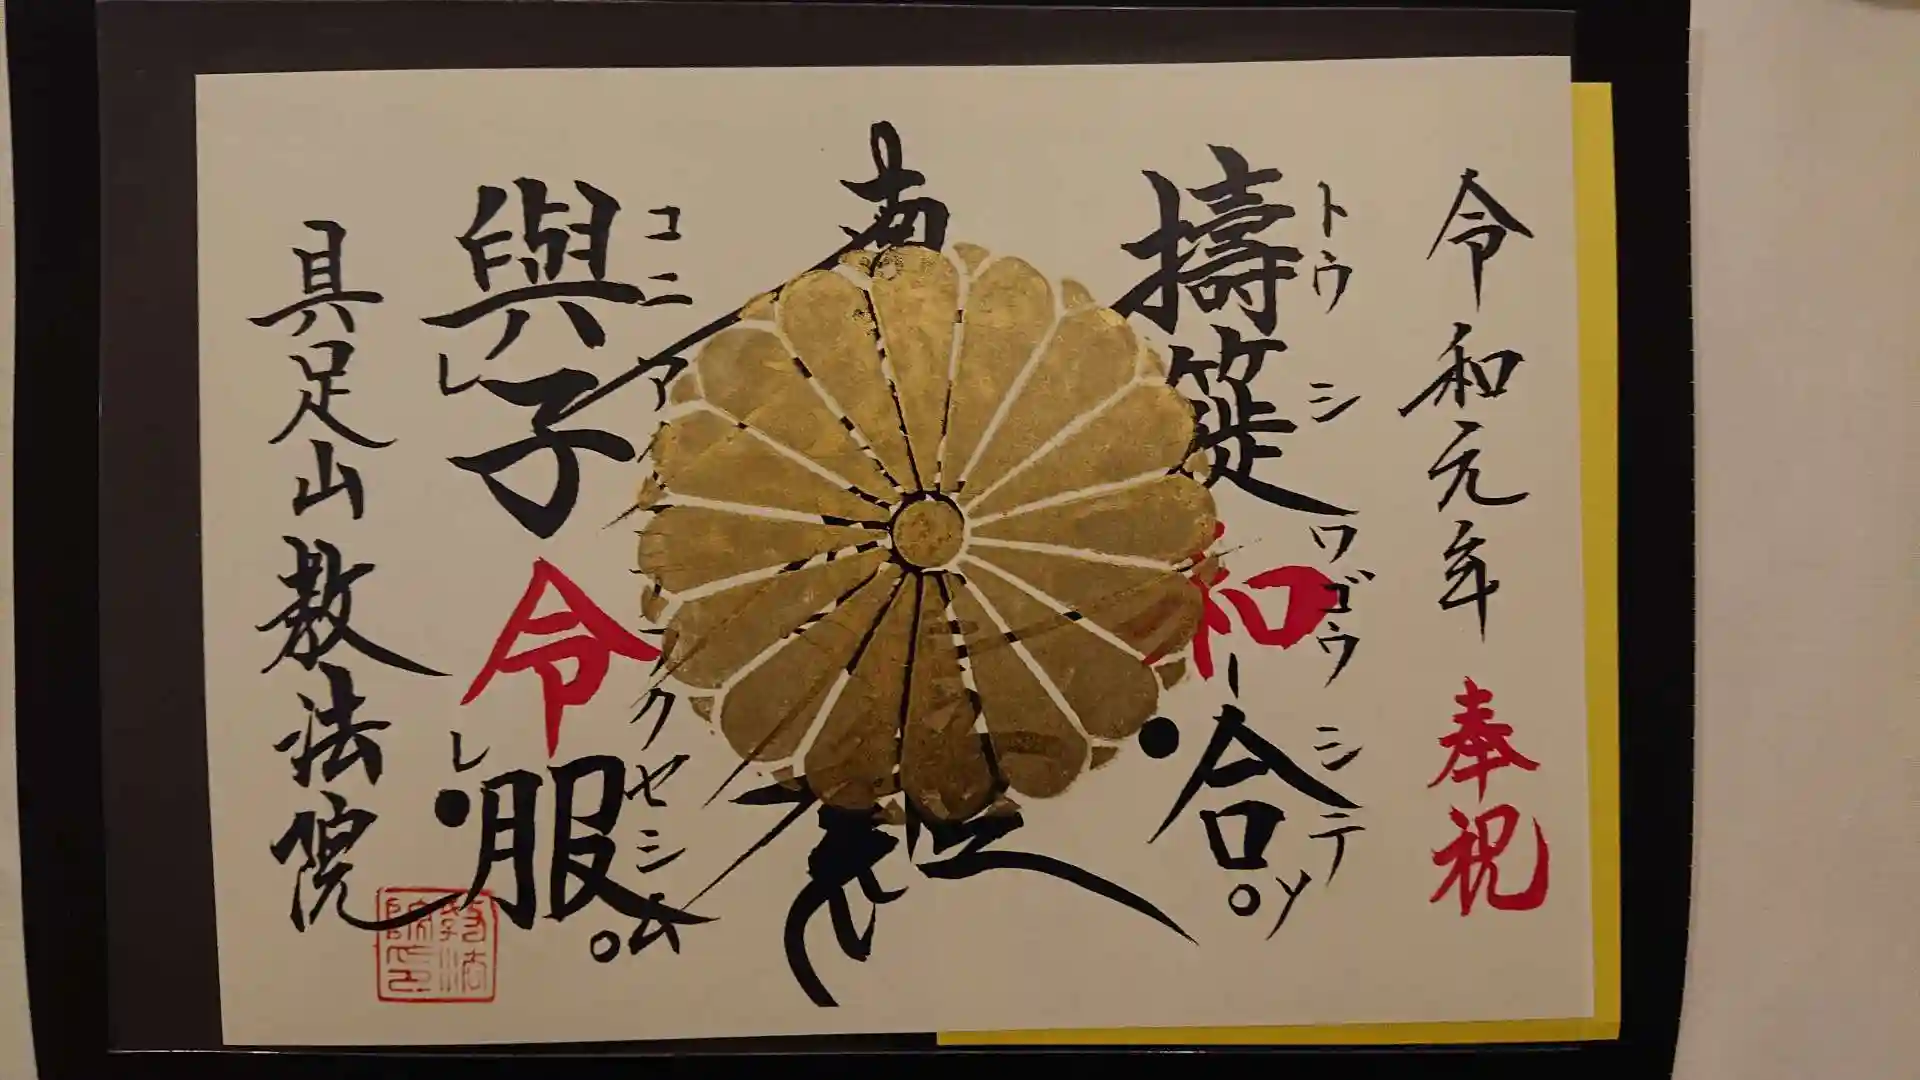 令和元年 奉祝
トウ シ ワゴウ シテ
擣簁和-合
南
コニ ア フクセシム
與レ子令レ服
具足山 教法院
教法院印